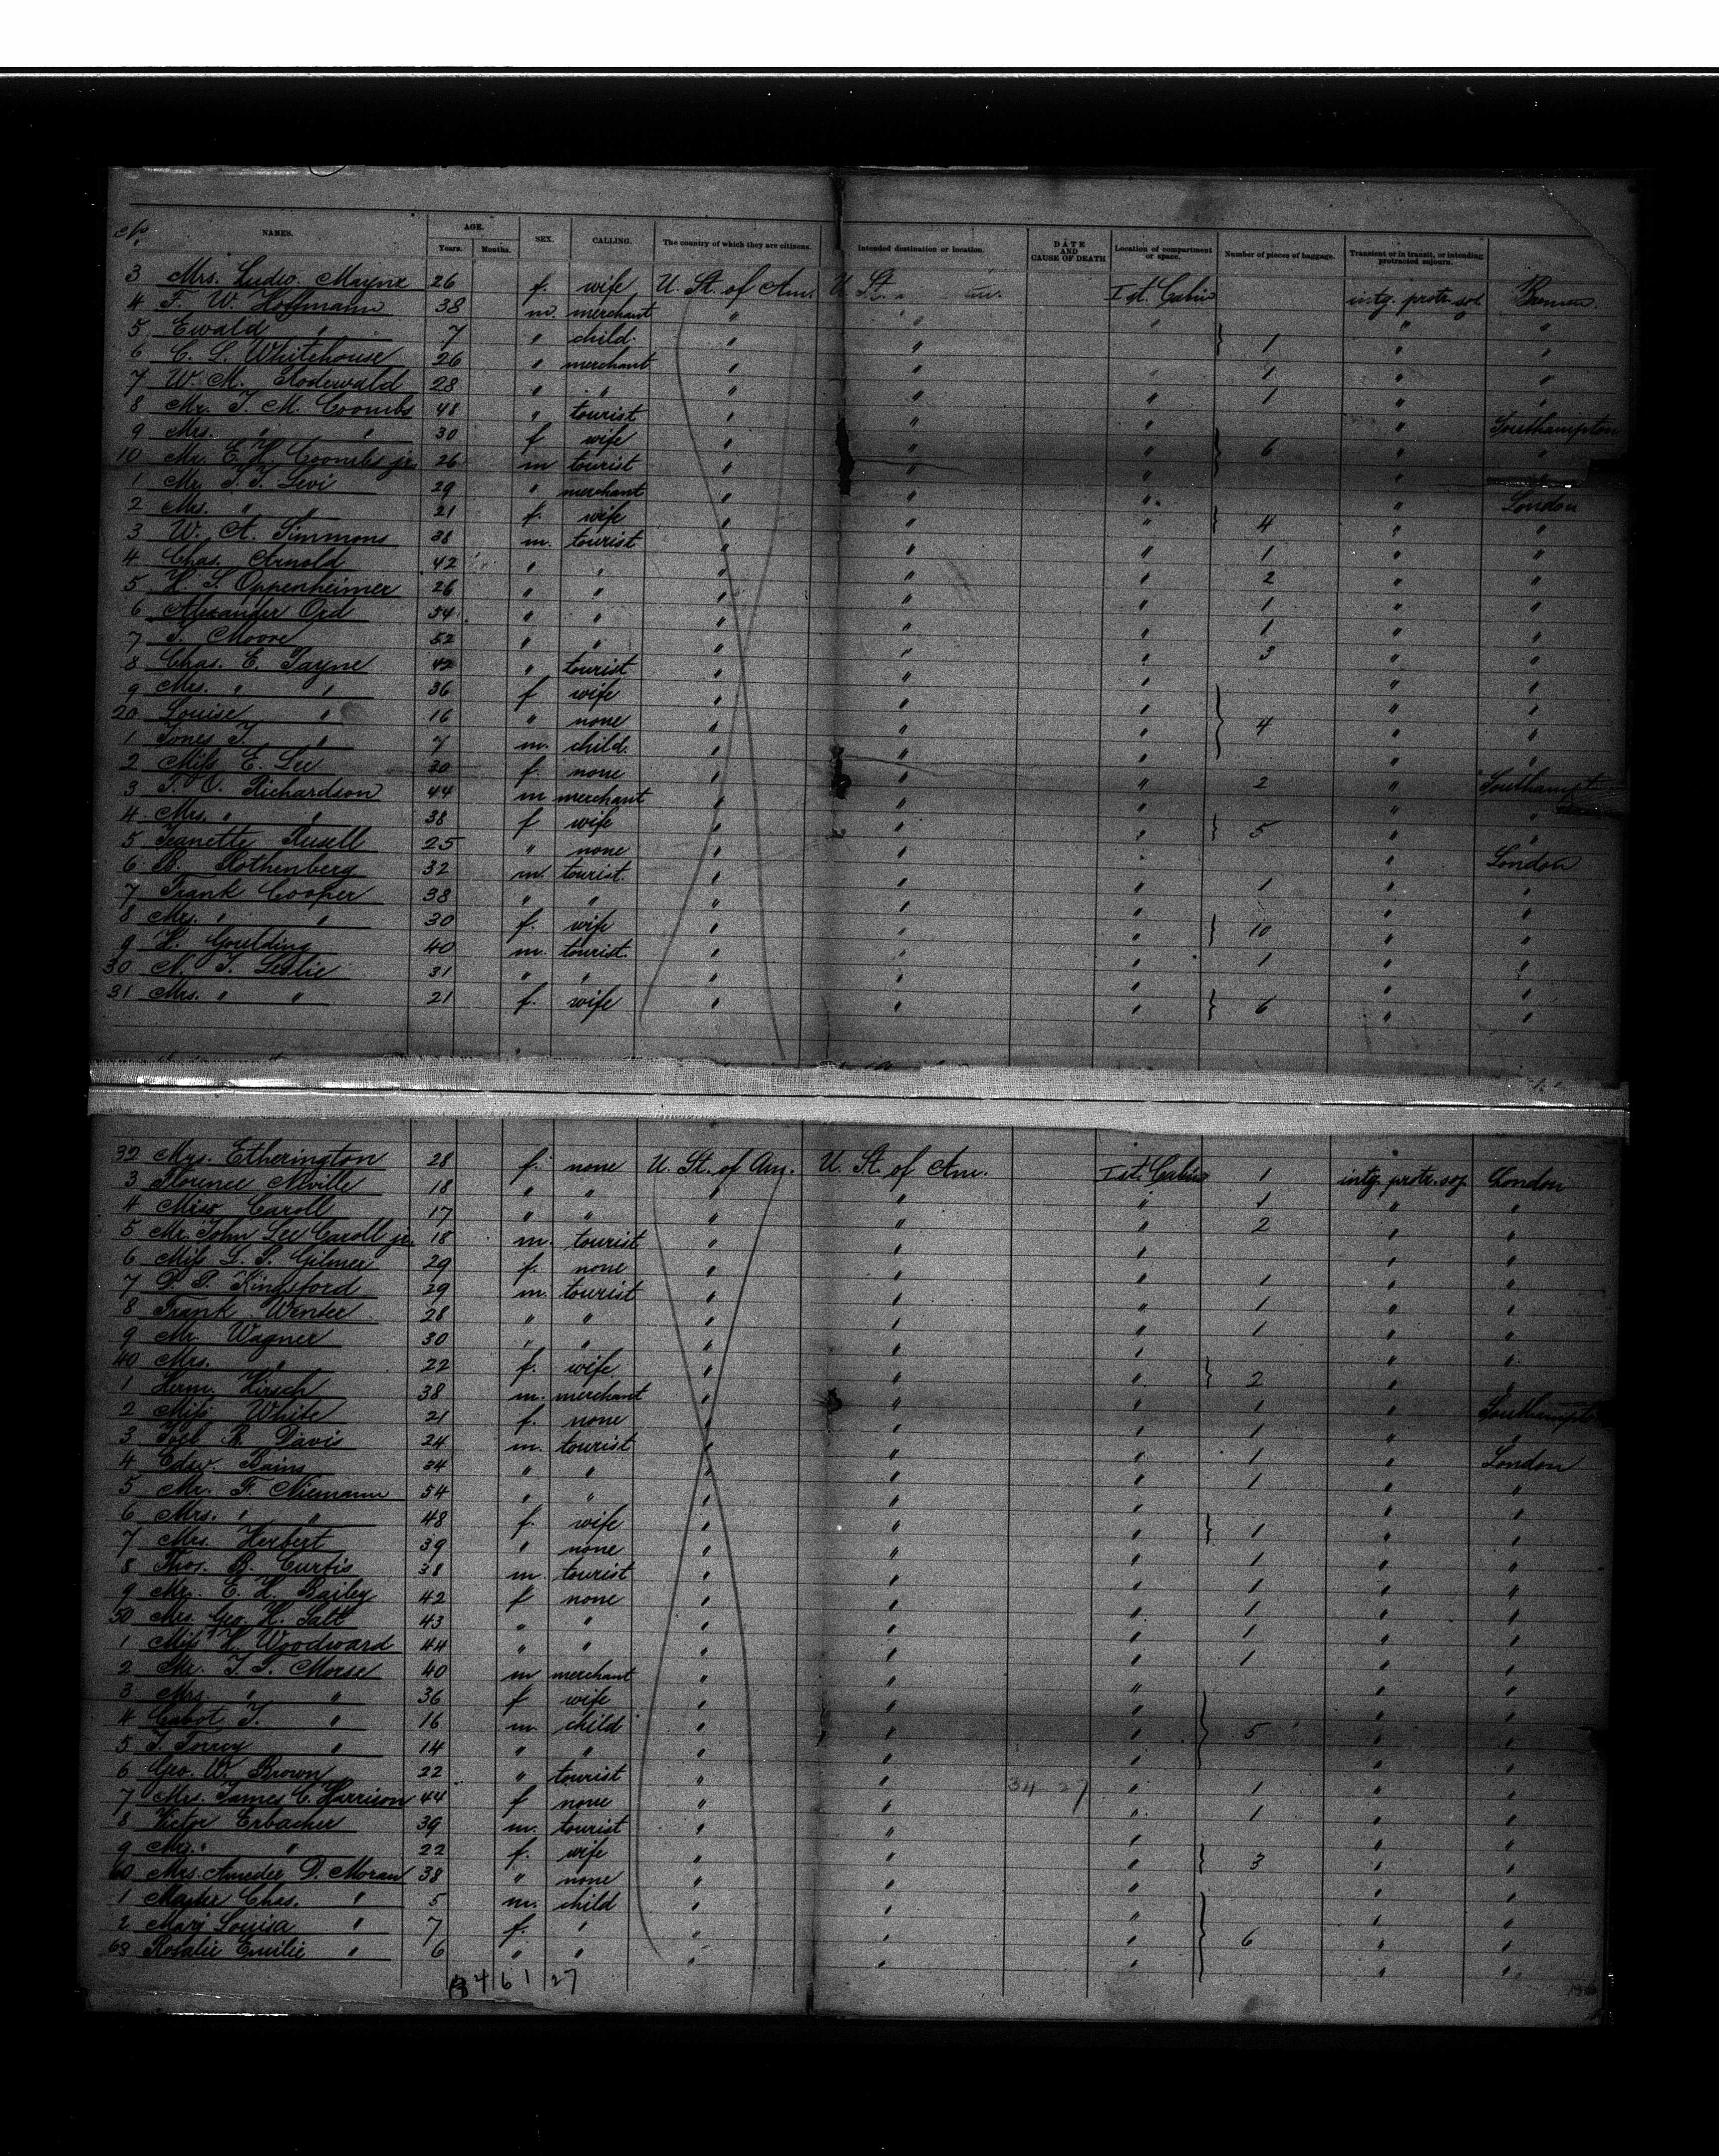 No. NAMES. AGE. Years. Months. SEX. CALLING. The country of which they are citizens. Intended destination or location. DATE AND CAUSE OF DEATH Location of compartment or space. Number of pieces of baggage. Transient or in transit, or intending protracted sojourn.
3 Mrs. Ludw. Mayne 26 f. wife U. St. of Am. U. St. Ist. Cabin intg. protr. soj. Bremen
4 F. W. Hoffmann 38 m. merchant " " " " "
5 Ewald " 7 " child " " } 1 " "
6 C. L. Whitehouse 26 " merchant " " 1 " "
7 W. M. Rodewald 28 " " " " " 1 " "
8 Mr. J. M. Coombs 48 " tourist " " " Southampton
9 Mrs. " " 30 f wife " " " } 6 " "
10 Mr. E. H. Coombs jr. 26 m tourist " " " "
1 Mr. J. J. Levi 29 " merchant " " " " London
2 Mrs. " " 21 f. wife " " " } 4 " "
3 W. A. Simmons 38 m. tourist " " " 1 " "
4 Chas. Arnold 42 " " " " " 2 " "
5 H. S. Oppenheimer 26 " " " " " 1 " "
6 Alexander Ord 54 " " " " " 1 " "
7 J. Moore 52 " " " " " 3 " "
8 Chas. E. Payne 42 " tourist " " " " "
9 Mrs. " " 36 f wife " " " " "
20 Louise " 16 " none " " " } 4 " "
1 Jones J. " 7 m. child. " " " "
2 Miss E. Lee 20 f. none " " " 2 " Southampt
3 J. O. Richardson 44 m merchant " " " " "
4 Mrs. " " 38 f wife " " " } 5 " "
5 Jeanette Rusell 25 " none " " " " London
6 B. Rothenberg 32 m. tourist. " " " 1 " "
7 Frank Cooper 38 " " " " " " "
8 Mrs. " " 30 f. wife " " " } 10 " "
9 H. Goulding 40 m. tourist. " " " 1 " "
30 N. J. Leslie 31 " " " " " " "
31 Mrs. " " 21 f. wife " " " } 6 " "
32 Mrs. Etherington 28 f. none U. St. of Am. U. St. of Am. Ist. Cabin 1 intg. protr. soj. London
3 Florence Neville 18 " " " " " 1 " "
4 Miss Caroll 17 " " " " " 2 " "
5 Mr. John Lee Caroll jr. 18 m. tourist " " " " "
6 Miss L. P. Gilmer 29 f. none " " " 1 " "
7 D. P. Kingsford 29 m. tourist " " " 1 " "
8 Frank Wenter 28 " " " " " 1 " "
9 Mr. Wagner 30 " " " " " " "
40 Mrs. " 22 f. wife " " " } 2 " "
1 Herm. Hirsch 38 m. merchant " " " 1 " Southampt
2 Miss White 21 f. none " " " 1 " "
3 R. Davis 24 m. tourist " " " 1 " London
4 Edw. Bains 34 " " " " " 1 " "
5 Mr. F. Niemann 54 " " " " " "
6 Mrs. " " 48 f. wife " " " } 1 " "
7 Mrs. Herbert 39 " none " " " 1 " "
8 Thos. B. Curtis 38 m. tourist " " " 1 " "
9 Mrs. E. H. Bailey 42 f none " " " 1 " "
50 Mrs. Geo. H. Salt 43 " " " " " 1 " "
1 Miss H. Woodward 44 " " " " " 1 " "
2 Mr. J. T. Morse 40 m merchant " " " " "
3 Mrs. " " 36 f wife " " " " "
4 Cabot J. " 16 m. child " " " } 5 " "
5 J. Torrey " 14 " " " " " " "
6 Geo. W. Brown 22 " tourist " " 34 27 " 1 " "
7 Mrs. James C. Harrison 44 f none " " " 1 " "
8 Victor Erbacher 39 m. tourist " " " " "
9 Mrs. " 22 f. wife " " " } 3 " "
60 Mrs. Amedee D. Moran 38 " none " " " " "
1 Master Chas. " 5 m. child " " " " "
2 Marj Louisa " 7 f. " " " " } 6 " "
63 Rosalie Emilie " 6 " " " " " " "
3461 27